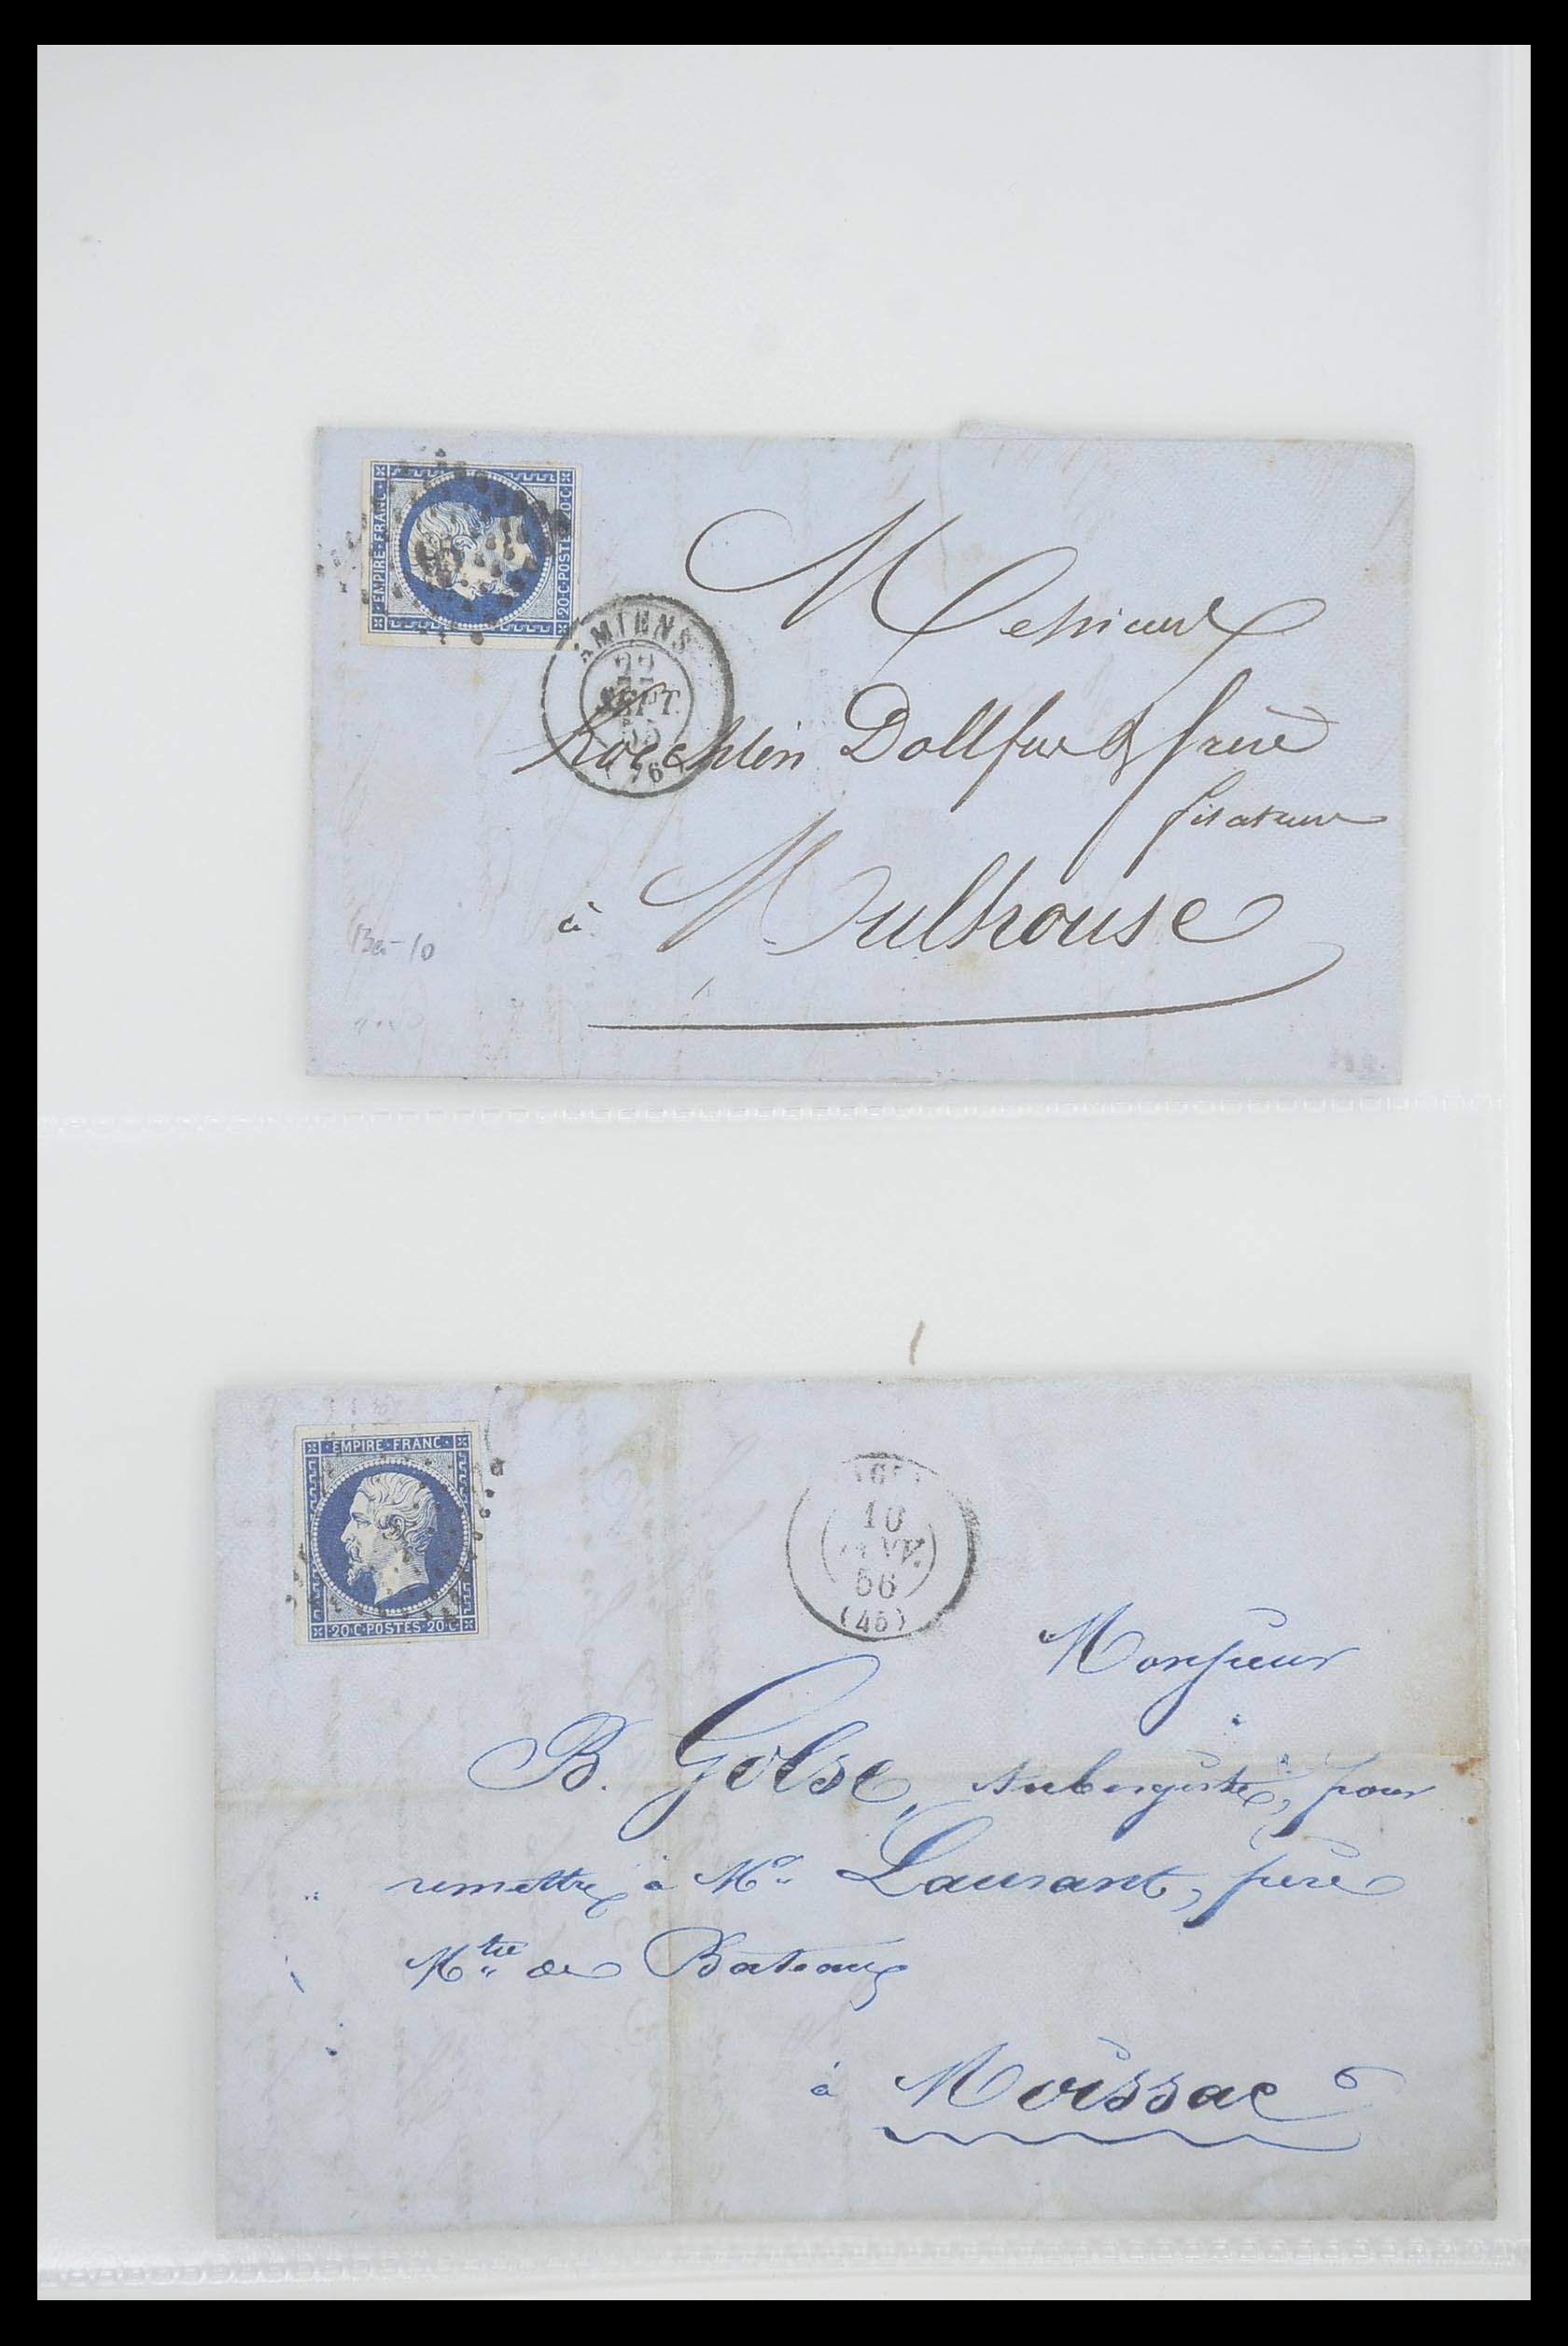 EMPIRE·FRANC·
20·C·POSTE 20·C·
AMIENS
22
SEPT.
55
(76)
Messieurs
Koechlin Dollfus & frère
filateurs
à Mulhouse
EMPIRE·FRANC·
20·C·POSTES·20·C·
10
56
(45)
Monsieur
B. Golse, Aubergiste, pour
remettre à Mr. Laurant, père
Mtre de Bateaux
à Moissac